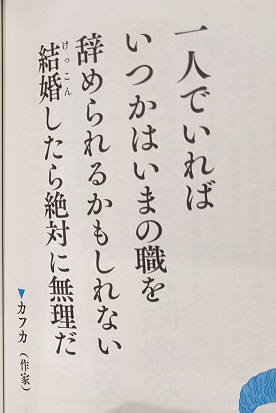 一人でいれば
いつかはいまの職を
辞められるかもしれない
結婚したら絶対に無理だ
けっこん
▼カフカ（作家）